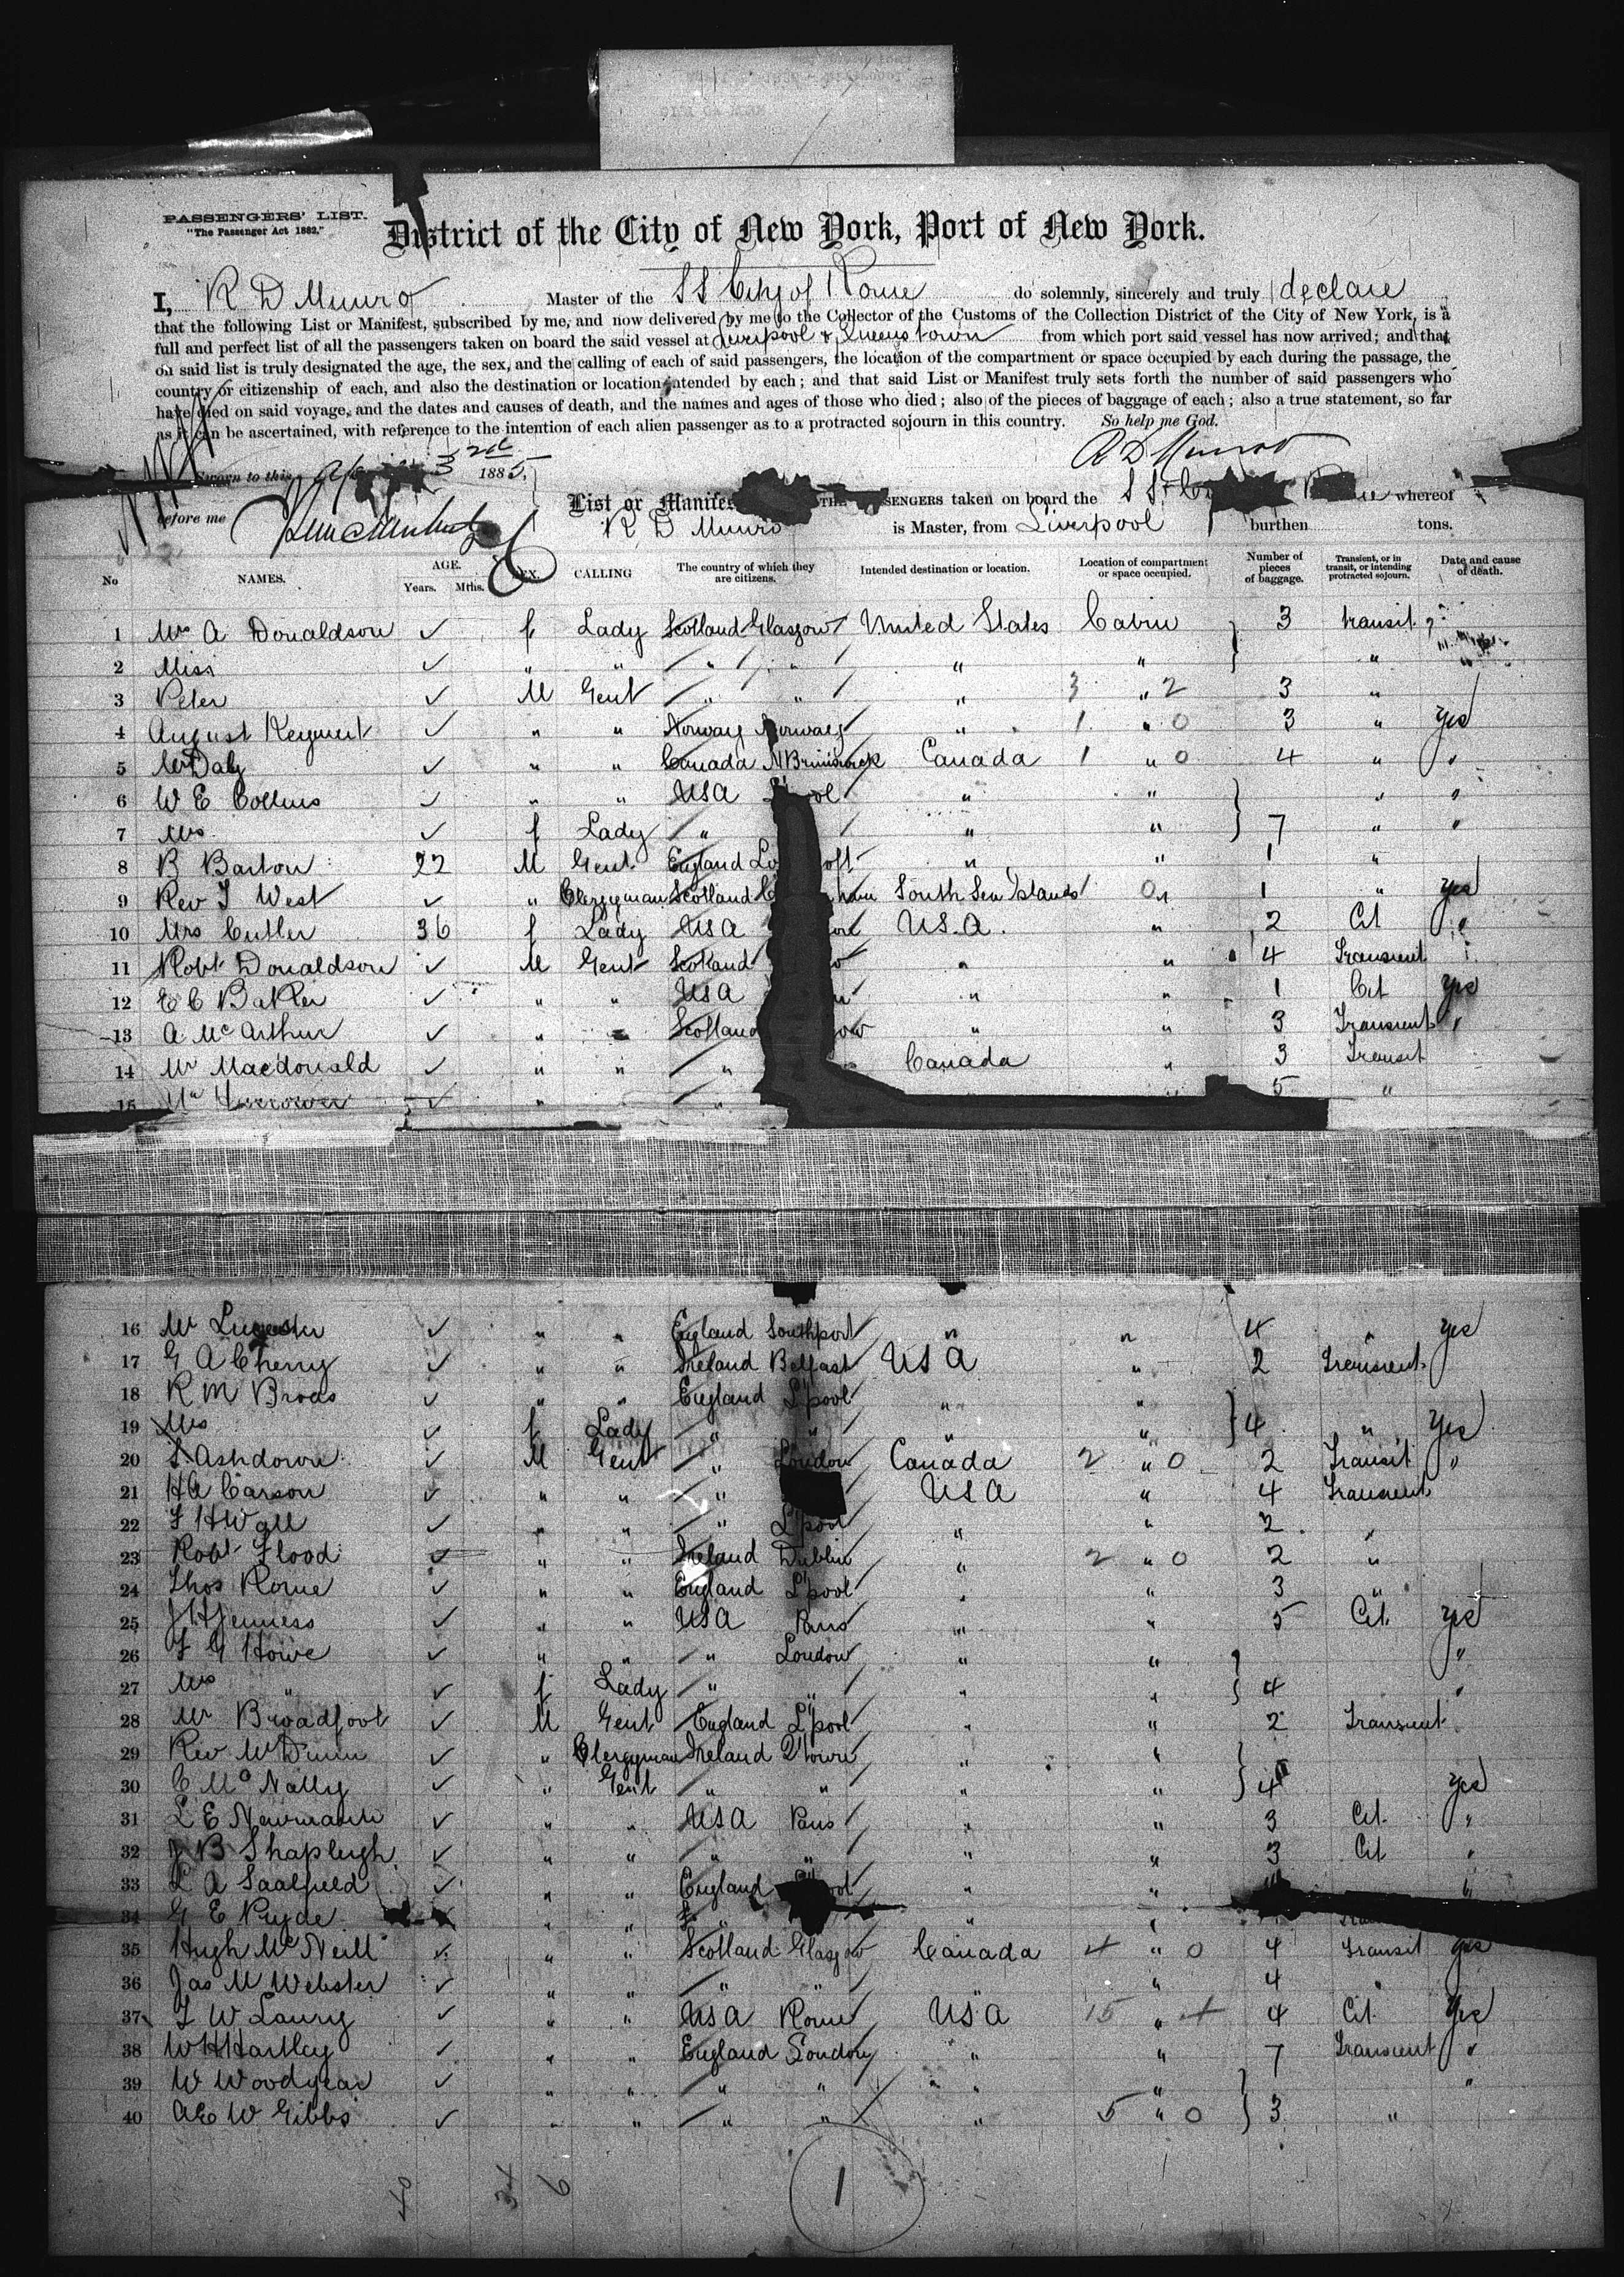 PASSENGERS' LIST.
"The Passenger Act 1882."
District of the City of New York, Port of New York.
I, R D Munro Master of the SS City of Rome do solemnly, sincerely and truly declare
that the following List or Manifest, subscribed by me, and now delivered by me to the Collector of the Customs of the Collection District of the City of New York, is a
full and perfect list of all the passengers taken on board the said vessel at Liverpool & Queenstown from which port said vessel has now arrived; and that
on said list is truly designated the age, the sex, and the calling of each of said passengers, the location of the compartment or space occupied by each during the passage, the
country or citizenship of each, and also the destination or location intended by each; and that said List or Manifest truly sets forth the number of said passengers who
have died on said voyage, and the dates and causes of death, and the names and ages of those who died; also of the pieces of baggage of each; also a true statement, so far
as it can be ascertained, with reference to the intention of each alien passenger as to a protracted sojourn in this country. So help me God.
R D Munro
Sworn to this 1885,
before me
List or Manifes THE SENGERS taken on board the SS whereof
R D Munro is Master, from Liverpool burthen tons.
No NAMES. AGE. Years. Mths. CALLING The country of which they are citizens. Intended destination or location. Location of compartment or space occupied. Number of pieces of baggage. Transient, or in transit, or intending protracted sojourn. Date and cause of death.
1 Mrs A Donaldson ✓ f Lady Scotland Glasgow United States Cabin 3 transit
2 Miss ✓ " " " " " " "
3 Peter ✓ M Gent " " " 3 " 2 3 "
4 August ✓ " " Norway Norway " 1 " 0 3 " Yes
5 Mr Daly ✓ " " Canada N Brunswick Canada 1 " 0 4 " "
6 W E Collins ✓ " " USA " " " "
7 Mrs ✓ f Lady " " " 7 " "
8 B Barton 22 M Gent England " " 1 "
9 Rev J West ✓ " Clergyman Scotland South Sea Islands 1 0 " 1 " Yes
10 Mrs Cutler 36 f Lady USA U.S.A. " 2 Cit "
11 Robt Donaldson ✓ M Gent Scotland " " 4 Transient
12 E C Baker ✓ " " USA " " 1 Cit Yes
13 A McArthur ✓ " Scotland " " 3 Transient "
14 Mr Macdonald ✓ " " " Canada " 3 Transit
15 ✓ " " 5 "
16 Mr ✓ " " England Southport " " 4 " Yes
17 G A Cherry ✓ " " Ireland Belfast USA " 2 Transient
18 R M Broas ✓ " " England L'pool " "
19 Mrs ✓ f Lady " " " " 4 " Yes
20 S Ashdown ✓ M Gent " London Canada 2 " 0 2 Transit "
21 HA Carson ✓ " " " USA " 4 Transient
22 F H Wall ✓ " " " L'pool " " 2 "
23 Robt Flood ✓ " " Ireland Dublin " 2 " 0 2 "
24 Thos Rome ✓ " " England L'pool " " 3 "
25 J H Jenness ✓ " " USA Paris " " 5 Cit Yes
26 F G Howe ✓ " " " London " " "
27 Mrs " ✓ f Lady " " " " 4 "
28 Mr Broadfoot ✓ M Gent England L'pool " " 2 Transient
29 Rev Mr Dunn ✓ " Clergyman Ireland Q'town " "
30 C McNally ✓ " Gent " " " 4 Yes
31 L E ✓ " " USA Paris " " 3 Cit "
32 J B Shapleigh ✓ " " " " " " 3 Cit "
33 L A Saalfield ✓ " " England " " "
34 G E Pryde " " " "
35 Hugh McNeill ✓ " " Scotland Glasgow Canada 4 " 0 4 Transit Yes
36 Jas M Webster ✓ " " " " " 4 "
37 F W Laury ✓ " " USA Rome USA 15 " 4 4 Cit Yes
38 W H Hartley ✓ " " England London " " 7 Transient "
39 W Woodyear ✓ " " " " " " "
40 A E W Gibbs ✓ " " " " " 5 " 0 3 "
40 34 6
1